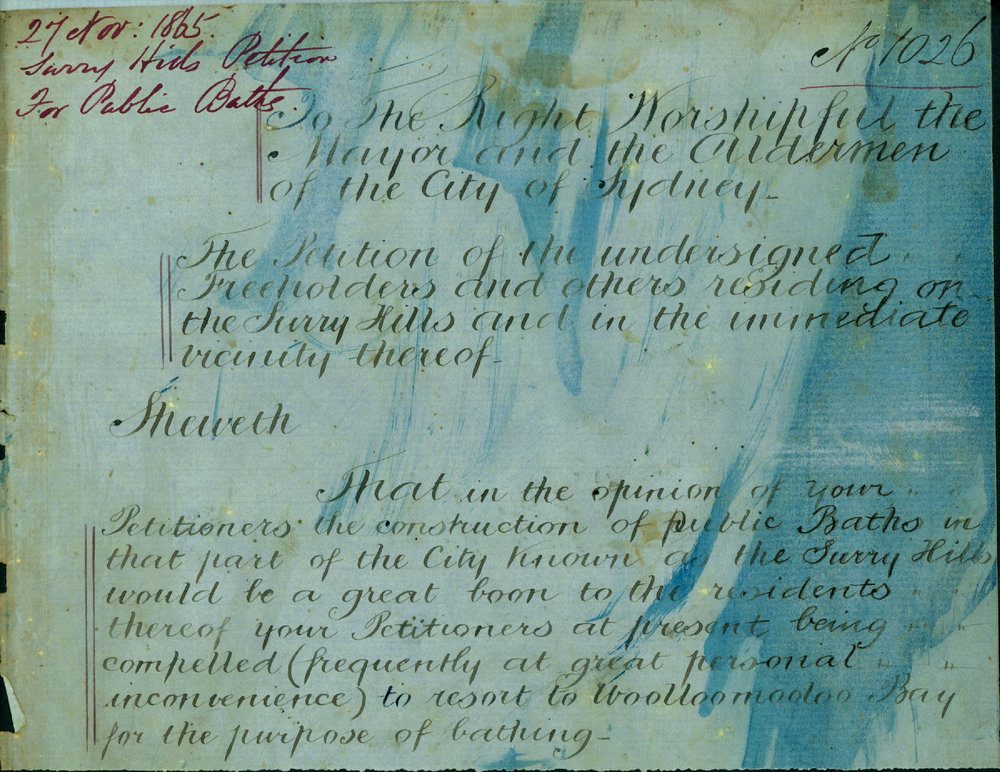 27 Nov: 1865.
Surry Hills Petition
For Public Baths.
No 1026
To The Right Worshipful the
Mayor and the Aldermen
of the City of Sydney-
The Petition of the undersigned " "
Freeholders and others residing on
the Surry Hills and in the immediate
vicinity thereof-
Sheweth
That in the opinion of your " "
Petitioners the construction of public Baths in
that part of the City Known as the Surry Hills
would be a great boon to the residents " "
thereof your Petitioners at present being " "
compelled (frequently at great personal " "
inconvenience) to resort to Woolloomooloo Bay
for the purpose of bathing-